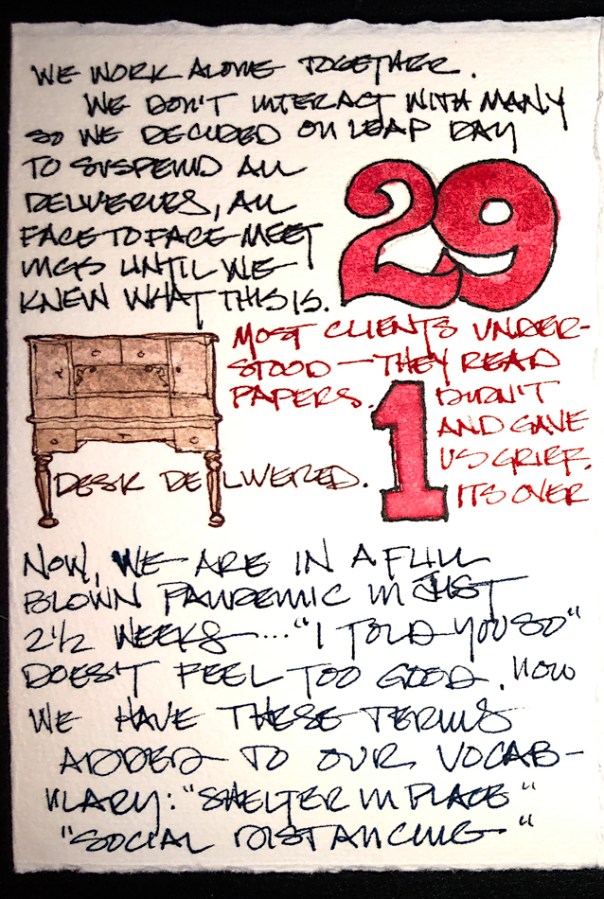 WE WORK ALONE TOGETHER.
WE DON'T INTERACT WITH MANY
SO WE DECIDED ON LEAP DAY
TO SUSPEND ALL
DELIVERIES, ALL
FACE TO FACE MEET
INGS UNTIL WE
KNEW WHAT THIS IS.
29
MOST CLIENTS UNDER-
STOOD — THEY READ
PAPERS.
1 DIDN'T
AND GAVE
US GRIEF.
ITS OVER
DESK DELIVERED.
NOW, WE ARE IN A FULL
BLOWN PANDEMIC IN JUST
2 1/2 WEEKS... "I TOLD YOU SO"
DOESN'T FEEL TOO GOOD. NOW
WE HAVE THESE TERMS
ADDED TO OUR VOCAB-
ULARY: "SHELTER IN PLACE"
"SOCIAL DISTANCING"